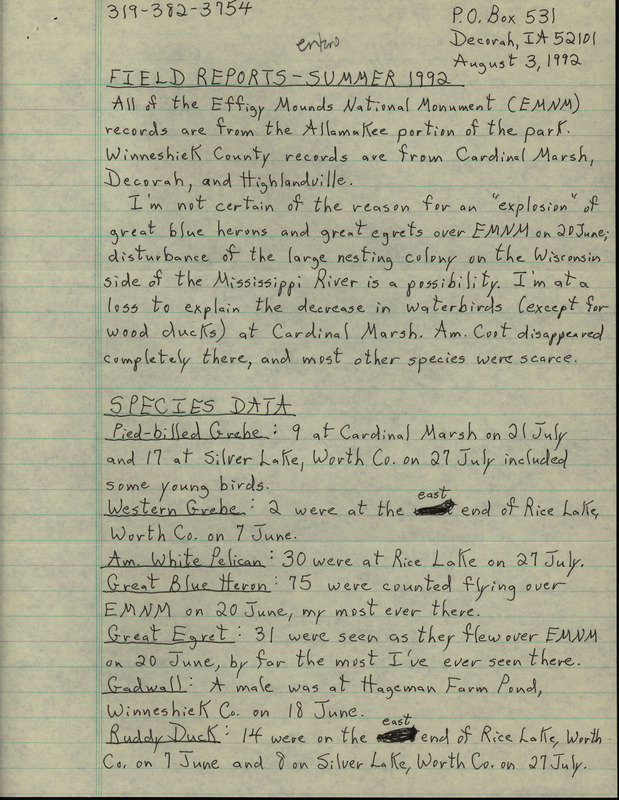 319-382-3754
P.O. Box 531
Decorah, IA 52101
August 3, 1992
FIELD REPORTS-SUMMER 1992
All of the Effigy Mounds National Monument (EMNM)
records are from the Allamakee portion of the park.
Winneshiek County records are from Cardinal Marsh,
Decorah, and Highlandville.
I'm not certain of the reason for an "explosion" of
great blue herons and great egrets over EMNM on 20 June;
disturbance of the large nesting colony on the Wisconsin
side of the Mississippi River is a possibility. I'm at a
loss to explain the decrease in waterbirds (except for
wood ducks) at Cardinal Marsh. Am. Coot disappeared
completely there, and most other species were scarce.
SPECIES DATA
Pied-billed Grebe: 9 at Cardinal Marsh on 21 July
and 17 at Silver Lake, Worth Co. on 27 July included
some young birds.
Western Grebe: 2 were at the east end of Rice Lake,
Worth Co. on 7 June.
Am. White Pelican: 30 were at Rice Lake on 27 July.
Great Blue Heron: 75 were counted flying over
EMNM on 20 June, my most ever there.
Great Egret: 31 were seen as they flew over EMNM
on 20 June, by far the most I've ever seen there.
Gadwall: A male was at Hageman Farm Pond,
Winneshiek Co. on 18 June.
Ruddy Duck: 14 were on the east end of Rice Lake, Worth
Co. on 7 June and 8 on Silver Lake, Worth Co. on 27 July.